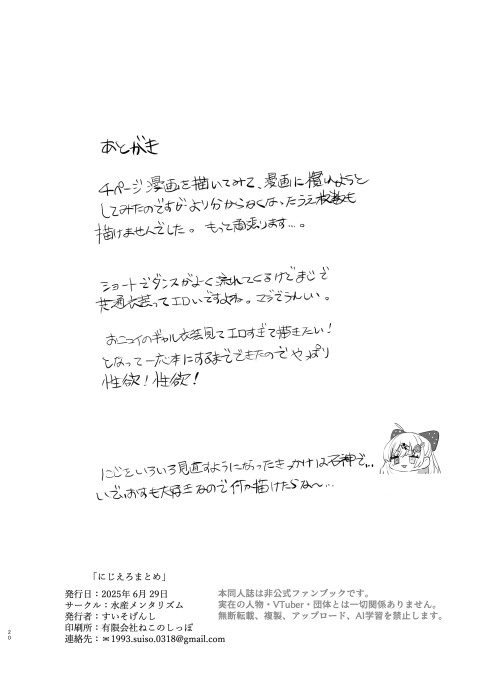 あとがき
4ページ漫画を描いてみて、漫画に慣れようと
してみたのですがより分からなくなったうえ枚数も
描けませんでした。もって頑張ります…。
ショートでダンスがよく流れてくるけどまじで
共通衣装ってエロいですよね。マジでうれしい。
おニュイのギャル衣装見てエロすぎて描きたい!
となって一応本にするまでできたのでやっぱり
性欲!性欲!
にじをいろいろ見直すようになったきっかけは石神で…
いで、おすも大好きなので何か描けたらな〜…
「にじえろまとめ」
発行日：2025年6月29日
サークル：水産メンタリズム
発行者：すいそげんし
印刷所：有限会社ねこのしっぽ
連絡先：✉1993.suiso.0318@gmail.com
本同人誌は非公式ファンブックです。
実在の人物・VTuber・団体とは一切関係ありません。
無断転載、複製、アップロード、AI学習を禁止します。
20